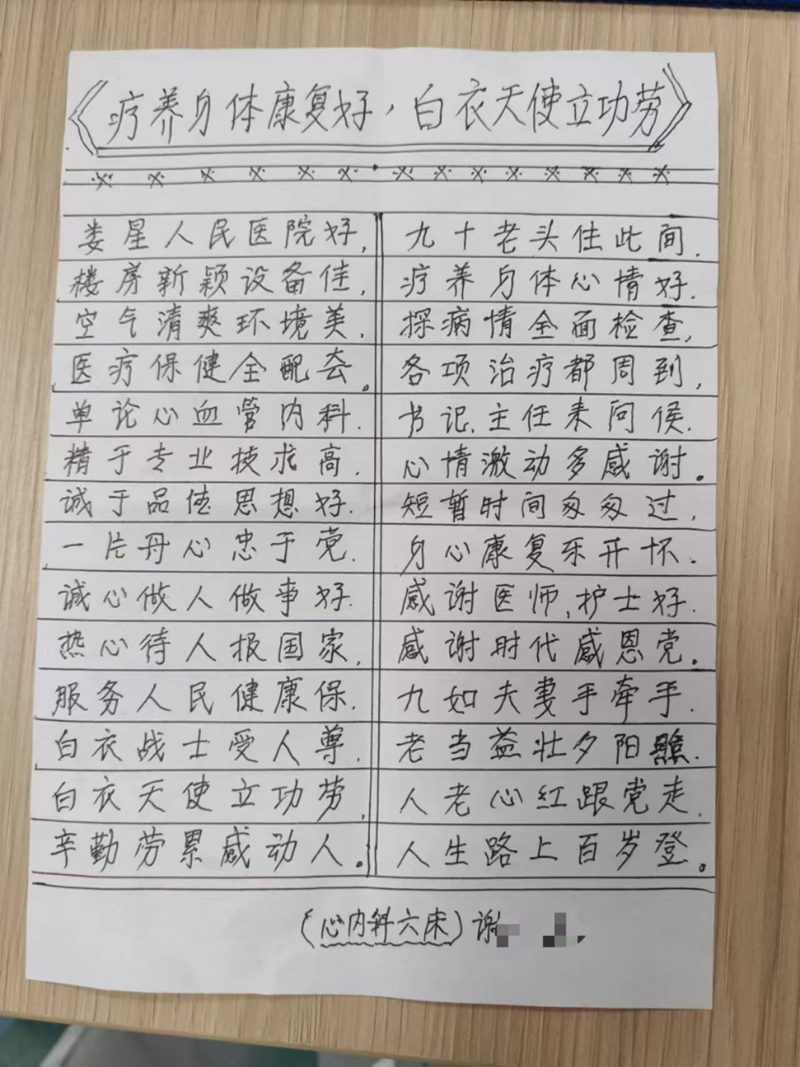 《疗养身体康复好，白衣天使立功劳》
娄星人民医院好,
楼房新颖设备佳,
空气清爽环境美.
医疗保健全配套。
单论心血管内科.
精于专业技术高.
诚于品德思想好.
一片丹心忠于党.
诚心做人做事好.
热心待人报国家,
服务人民健康保.
白衣战士受人尊.
白衣天使立功劳,
辛勤劳累感动人。
九十老头住此间.
疗养身体心情好.
探病情全面检查,
各项治疗都周到,
书记.主任来问侯.
心情激动多感谢。
短暂时间匆匆过,
身心康复乐开怀.
感谢医师,护士好.
感谢时代感恩党。
九如夫妻手牵手.
老当益壮夕阳.
人老心红跟党走.
人生路上百岁登。
(心内科六床)谢